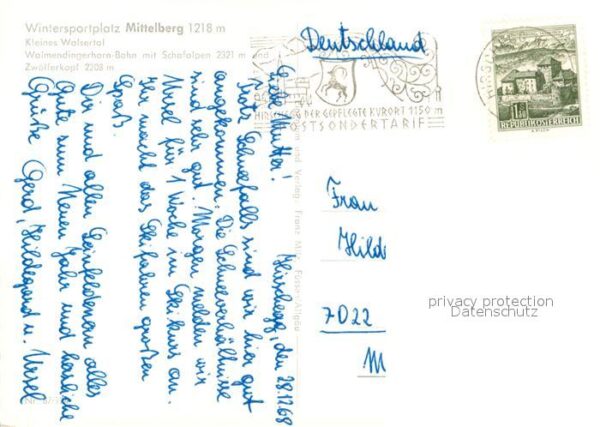 Wintersportplatz Mittelberg 1218 m
Kleines Walsertal
Walmendingerhorn-Bahn mit Schafalpen 2321 m und
Zwölferkopf 2208 m
Hirschegg, den 28.12.68
Liebe Mutter!
Trotz Schneefalls sind wir hier gut
angekommen. Die Schneeverhältnisse
sind sehr gut. Morgen melden wir
Ursel für 1 Woche im Skikurs an.
Ihr macht das Skifahren großen
Spaß.
Dir und allen Leinfeldenern alles
Gute zum Neuen Jahr und herzliche
Grüße Gerd, Hildegard u. Ursel
und Verlag: Franz Milz, Füssen-Allgäu
Deutschland
HIRSCHEGG DER GEPFLEGTE KURORT 1150 m
POSTSONDERTARIF
REPUBLIK ÖSTERREICH
Frau
Hilde
7022
privacy protection
Datenschutz